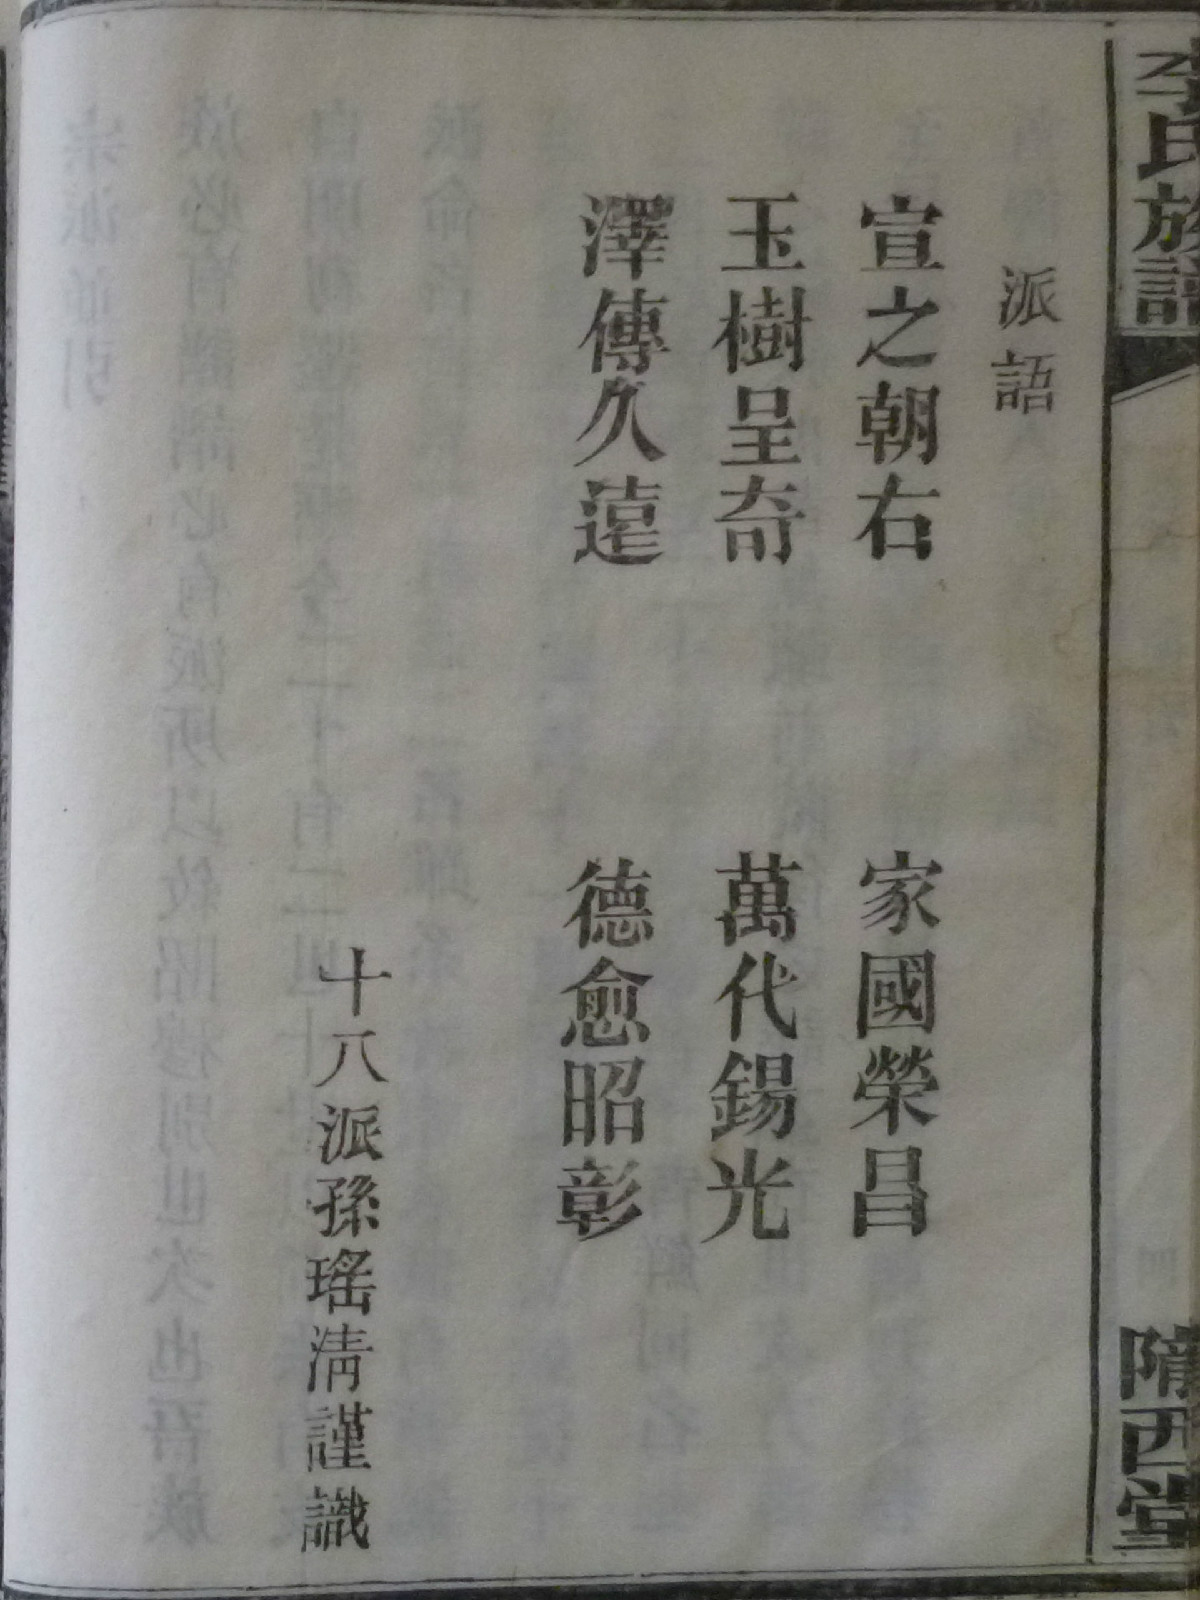 李氏族譜
隋西堂
派語
宣之朝右 家國榮昌
玉樹呈奇 萬代錫光
澤傳久遠 德愈昭彰
十八派孫瑤清謹識